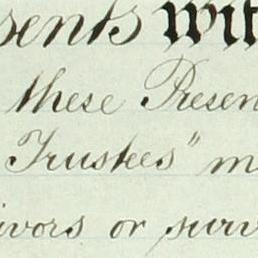 sents Wit
these Presen
Trustees" m
ivors or surv